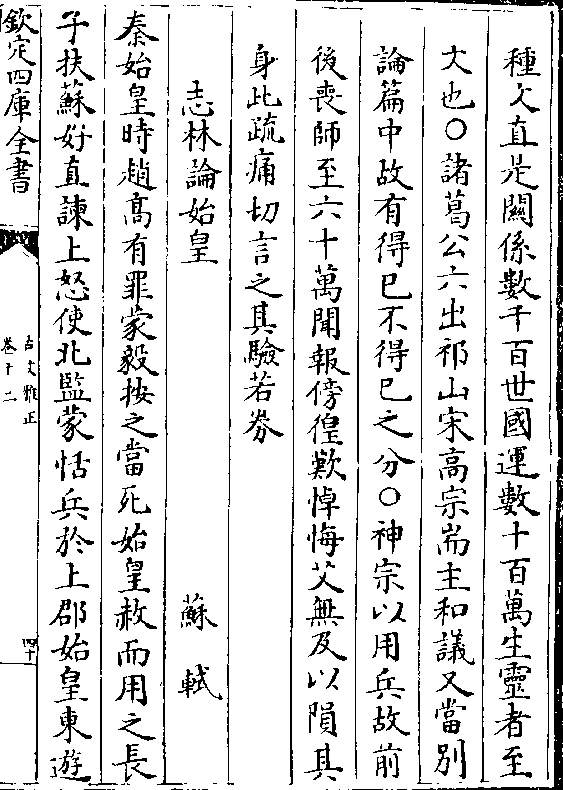 種文直是闗係數千百世國運數十百萬生靈者至
大也〇諸葛公六出祁山宋高宗耑主和議又當别
論篇中故有得已不得已之分〇神宗以用兵故前
後喪師至六十萬聞報傍徨歎悼悔艾無及以隕其
身此疏痛切言之其驗若券
志林論始皇 蘇軾
秦始皇時趙髙有罪蒙毅按之當死始皇赦而用之長
子扶蘇好直諫上怒使北監蒙恬兵於上郡始皇東遊
欽定四庫全書
古文雅正
卷十二
四十